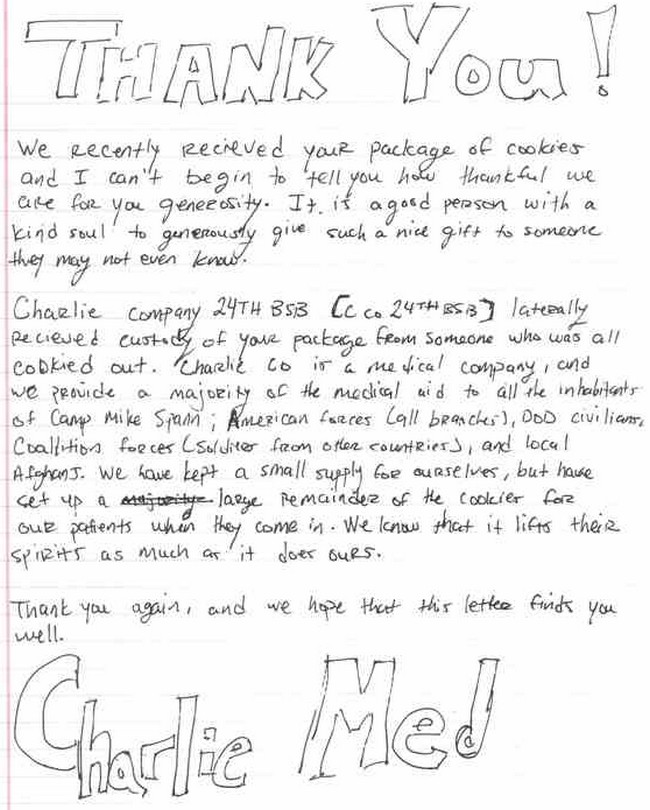 THANK You!
We recently recieved your package of cookies
and I can't begin to tell you how thankful we
are for you generosity. It is a good person with a
kind soul to generously give such a nice gift to someone
they may not even know.
Charlie company 24TH BSB [C co 24TH BSB] laterally
recieved custody of your package from someone who was all
cookied out. Charlie Co is a medical company, and
we provide a majority of the medical aid to all the inhabitants
of Camp Mike Spann; American forces (all branches), DOD civilians,
Coallition forces (Soldiers from other countries), and local
Afghans. We have kept a small supply for ourselves, but have
set up a majority large remainder of the cookies for
our patients when they come in. We know that it lifts their
spirits as much as it does ours.
Thank you again, and we hope that this letter finds you
well.
Charlie Med